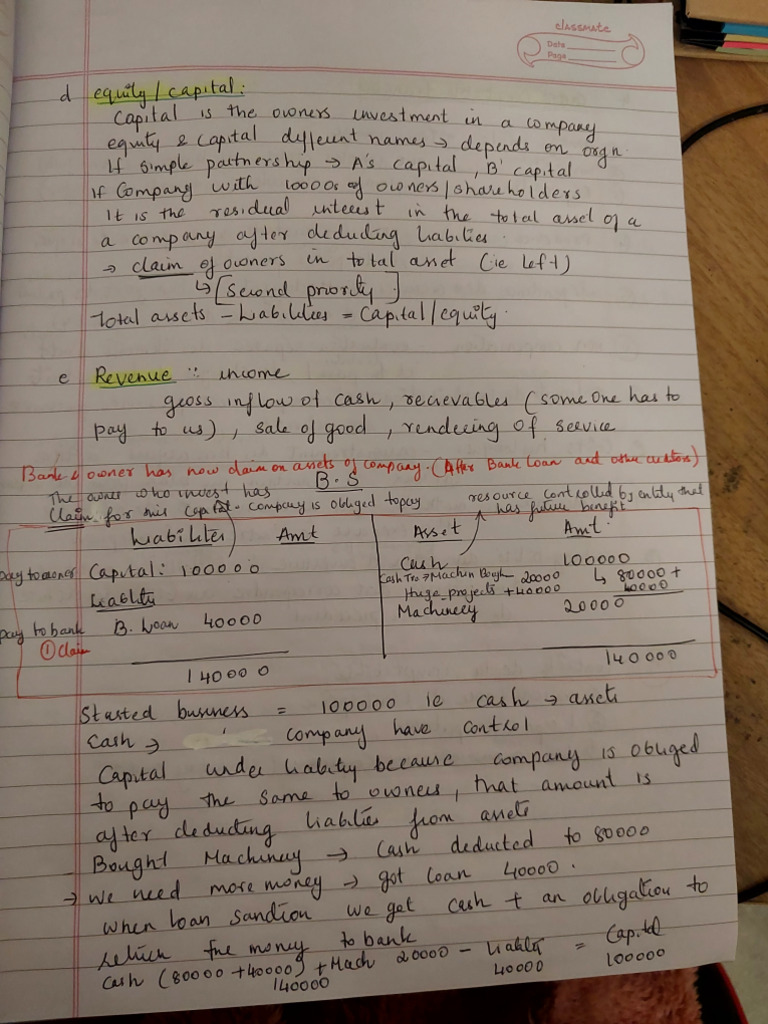 classmate
Date
Page
d equity/capital:
Capital is the owners investment in a company
equity & capital different names → depends on orgn.
If simple partnership → A's capital, B' capital
If Company with 10000s of owners/shareholders
It is the residual interest in the total asset of a
a company after deducting liabilities.
→ claim of owners in total asset (ie left)
↳ [Second priority]
Total assets – Liabilities = Capital/equity.
e Revenue :: income
gross inflow of cash, recievables (someone has to
pay to us), sale of good, rendering of service
Bank & owner has now claim on assets of company. (After Bank loan and other creditors)
B.S
The owner who invest has
claim for his capital. company is obliged to pay
resource controlled by entity that
has future benefit
Liabilites Amt Asset Amt
pay to owner Capital: 100000 Cash 100000
Cash Machin 20000 ↳ 80000 +
Liability Huge projects +40000 40000
Machinery 20000
pay to bank B. Loan 40000
① Claim
140000 140000
Started business = 100000 ie cash → assets
Cash → company have control
Capital under liabity because company is obliged
to pay the same to owners, that amount is
after deducting liabilties from assets
Bought Machinery → Cash deducted to 80000
→ we need more money → got loan 40000.
when loan sandion we get cash + an obligation to
the money to bank
Cash (80000 +40000) + Mach 20000 – Liablity = Capital
140000 40000 100000